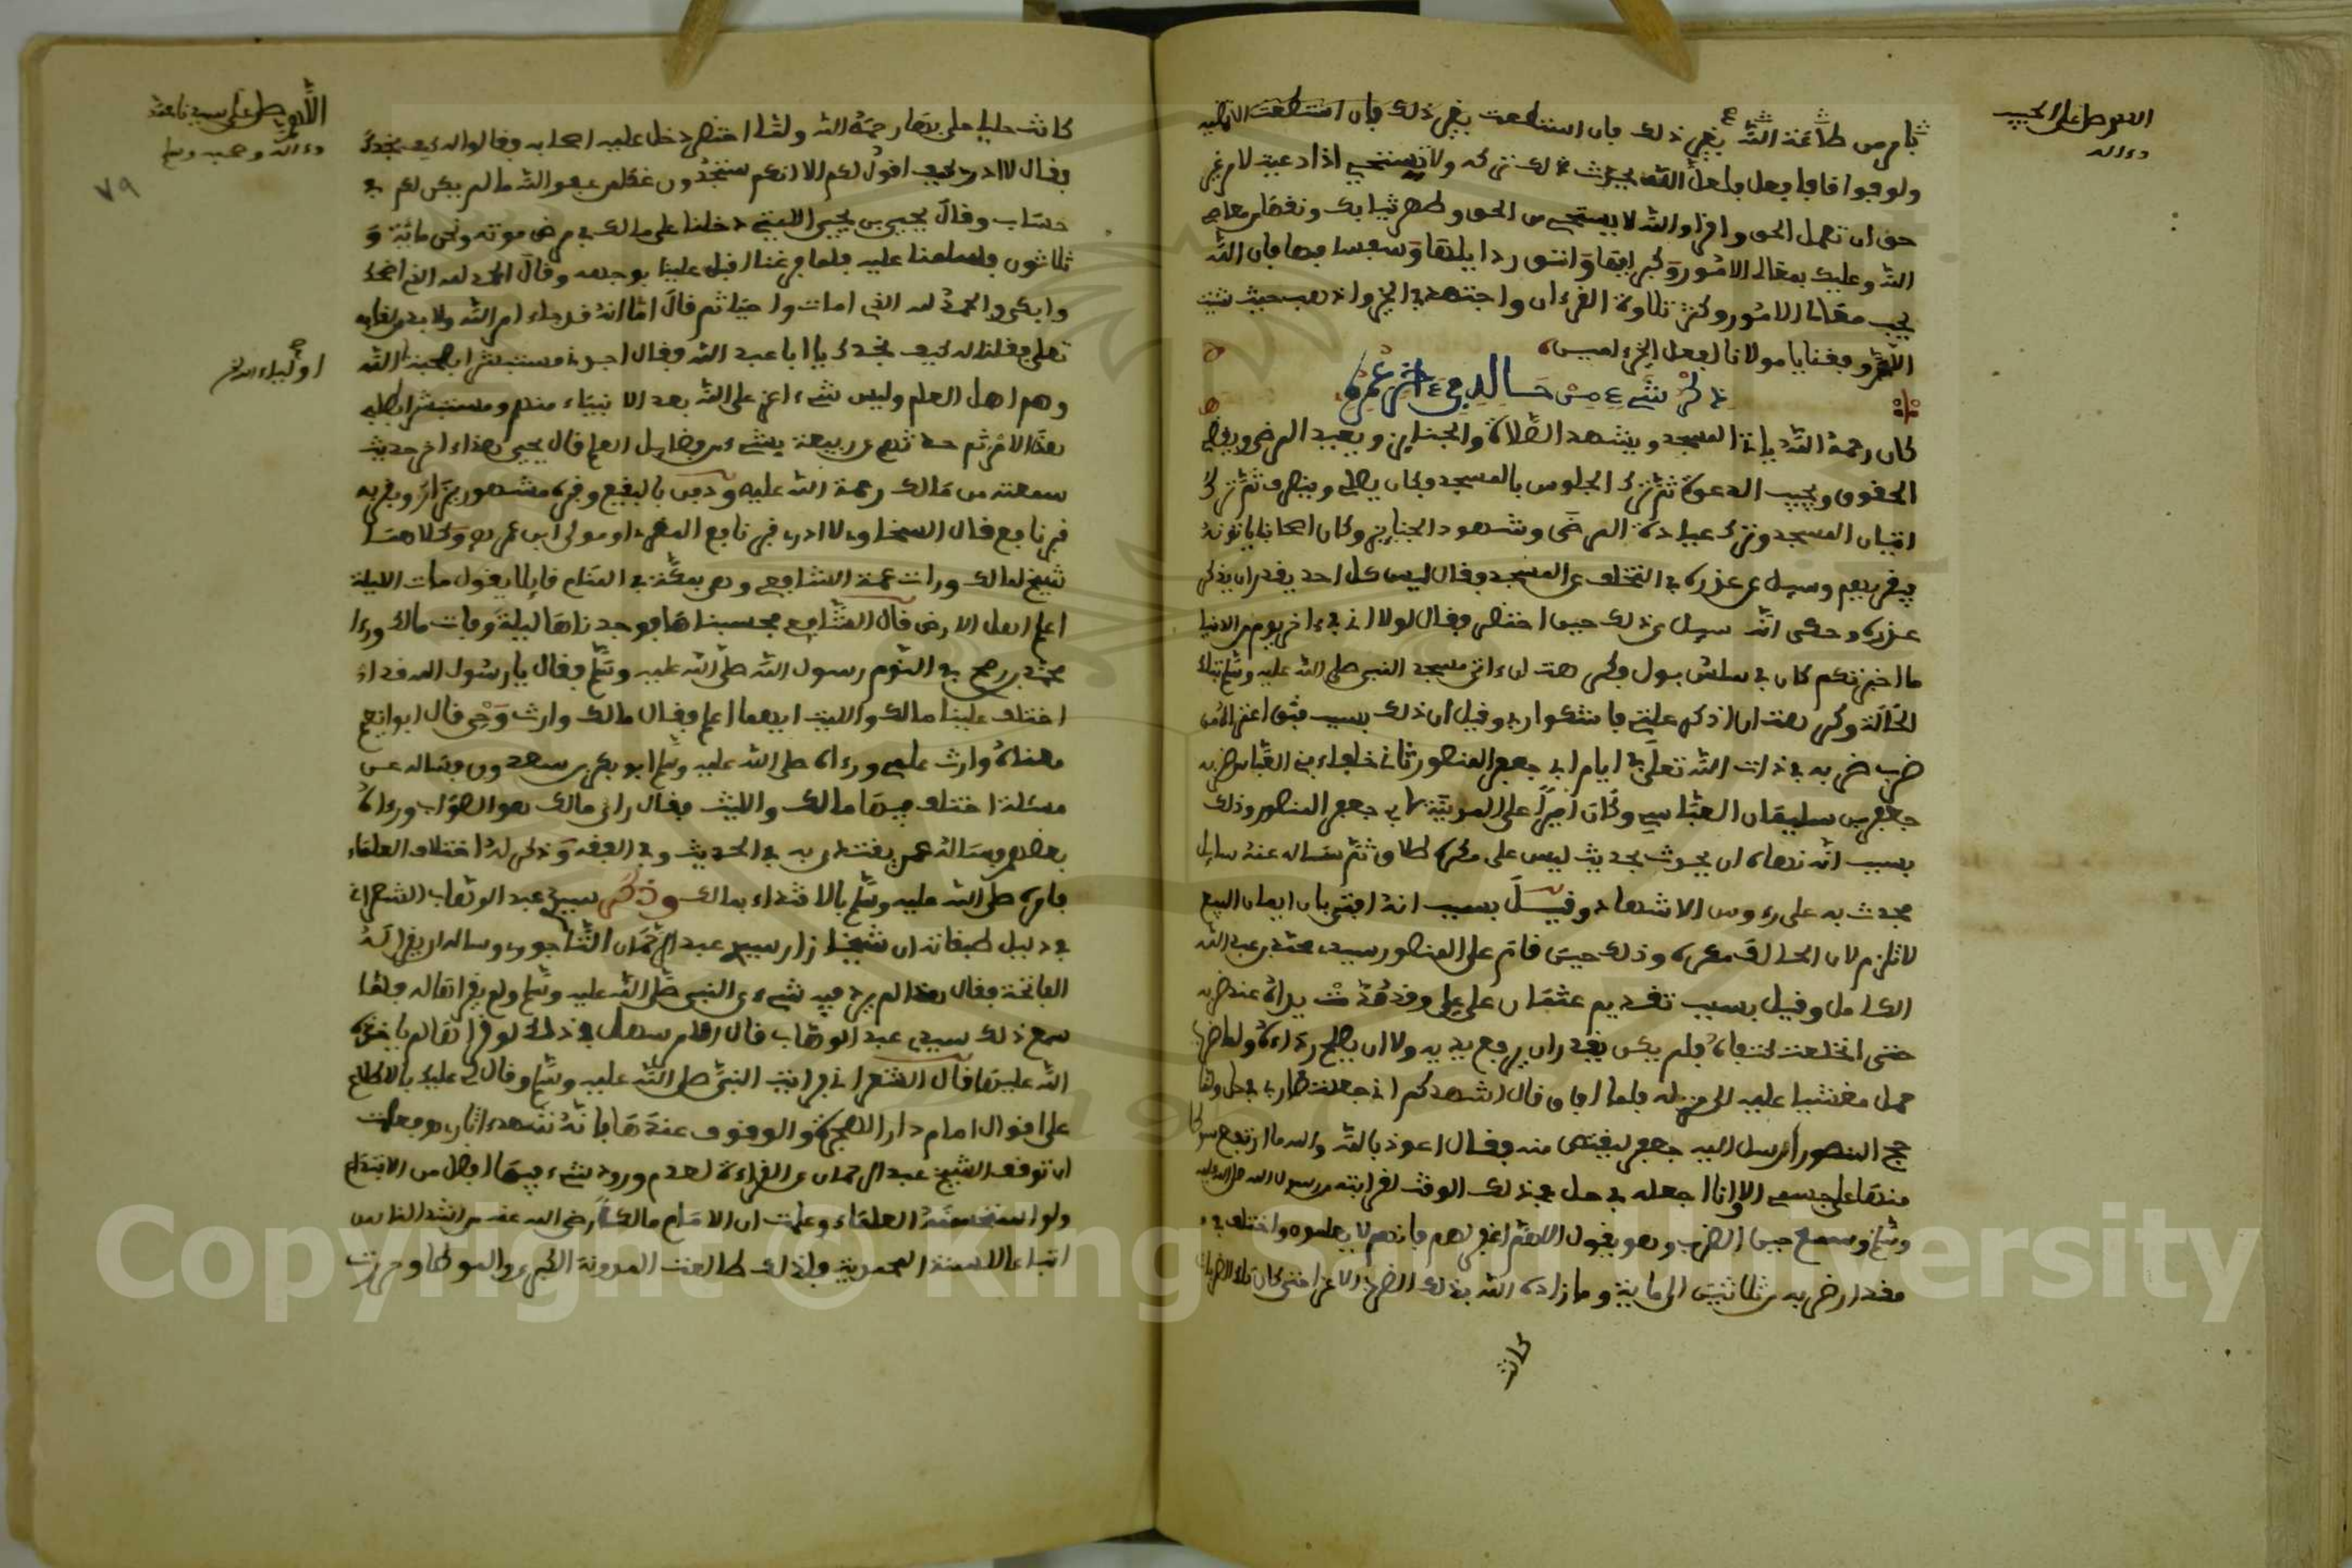 اللهم صل على الحبيب
وءاله
بامر من طاعة الله بغير ذلك فان استطعت بغير ذلك فان استطعت الا تطيـ
ولو فواقا فافعل فلعل الله يحدث لك تركه ولا تستحي اذا دعيت لامر غير
حق ان تعمل الحق واقرا والله لا يستحيي من الحق وطهر ثيابك ونقها من معاصي
الله وعليك بمعالي الامور وكبرايها واتق رذايلها وسفسافها فان الله
يحب معالي الامور وكثر تلاوة القرءان واجتهد في الخير واذهب حيث شئت
اللهم وفقنا يا مولانا لفعل الخير ءامين
ذكر شيء من حاله في ءاخر عمره
كان رحمه الله ياتي المسجد ويشهد الصلاة والجنايز ويعيد المرضى ويقضي
الحقوق ويجيب الدعوة ثم ترك الجلوس بالمسجد وكان يصلي وينصرف ثم ترك
اتيان المسجد وترك عيادة المرضى وشهود الجنايز وكان اصحابنا ياتونه
فيعزيهم وسيل عن عذره في التخلف عن المسجد وقال ليس كل احد يقدر ان يذكر
عذره وحكى انه سيل عن ذلك حين احتضر فقال لولا اني في ءاخر يوم من الدنيا
ما اخبرتكم كان بي سلس بول فكرهت ان ءاتي مسجد النبي صلى الله عليه وسلم بتلك
الحالة وكرهت ان اذكر علتي فاشكو ربي وقيل ان ذلك بسبب فتق اعتراه من
ضرب ضربه في ذات الله تعلى في ايام ابي جعفر المنصور ثاني خلفاء بني العباس ضربه
جعفر بن سليمان العباسي وكان اميرا على المدينة لابي جعفر المنصور وذلك
بسبب انه نهاه ان يحدث بحديث ليس على مكره طلاق ثم سأله عنه سايل
فحدث به على رءوس الاشهاد وقيل بسبب انه افتى بان ايمان البيع
لا تلزم لان الحالف مكره وذلك حين قام على المنصور سيدي محمد بن عبد الله
الكامل وقيل بسبب تقديم عثمان على علي وقد مدت يداه عند ضربه
حتى انخلعت كتفاه فلم يكن يقدر ان يرفع يديه ولا ان يصلح رداءه ولما ضرب
حمل مغشيا عليه الى منزله فلما افاق قال اشهدكم اني جعلت ضاربي في حل ولما
حج المنصور ارسل اليه جعفر ليقتص منه فقال اعوذ بالله والله ما ارتفع سوط
منها على جسمي الا وانا اجعله في حل في ذلك الوقت لقرابته من رسول الله صلى الله عليه
وسلم وسمع حين الضرب وهو يقول اللهم اغفر لهم فانهم لا يعلمون واختلف في
مقدار ضربه من ثلاثين الى ماية وما زاده الله بذلك الضرب الا عزا حتى كان تلك الاضراب
كانت
اللهم صل على سيدنا محمد
وءاله وصحبه وسلم
٧٩
كانت حليا حلي بها رحمه الله ولما احتضر دخل عليه اصحابه وقالوا له كيف نجدك
فقال لا ادري كيف اقول لكم الا انكم ستجدون غدا من عفو الله ما لم يكن لكم في
حساب وقال يحيى بن يحيى الليثي دخلنا على مالك في مرض موته ونحن مائة و
ثلاثون فسلمنا عليه فلما فرغنا اقبل علينا بوجهه وقال الحمد لله الذي اضحك
وابكى والحمد لله الذي امات واحيا ثم قال اما انه قد جاء امر الله ولا بد من لقايه
تعلى فقلنا له كيف نجدك يا ابا عبد الله فقال اجدني مستبشرا بصحبة الله
اولياء الله
وهم اهل العلم وليس شيء اعز على الله بعد الانبياء منهم ومستبشرا بطلبي
هذا الامر ثم حدثهم عن ربيعة بشيء من فضايل العلم قال يحيى هذا ءاخر حديث
سمعته من مالك رحمة الله عليه ودفن بالبقيع وقبره مشهور يزار وبقربه
قبر نافع قال السخاوي لا ادري قبر نافع المقرئ او مولى ابن عمر وكلاهما
شيخ لمالك ورات عمة الشافعي وهي بمكة في المنام قايلا يقول مات الليلة
اعلم اهل الارض قال الشافعي فحسبناها فوجدناها ليلة وفات مالك ورءا
محمد بن رمح في النوم رسول الله صلى الله عليه وسلم فقال يا رسول الله قد
اختلف علينا مالك والليث ايهما اعلم فقال مالك وارث وحي قال ابو نعيم
معناه وارث علمي ورءاه صلى الله عليه وسلم ابو بكر بن سعدون فسأله عن
مسئلة اختلف فيها مالك والليث فقال راي مالك هو الصواب ورءاه
بعضهم وسأله عمن يقتدى به في الحديث وفي الفقه وذكر له اختلاف العلماء
فامره صلى الله عليه وسلم بالاقتداء بمالك وذكر سيدي عبد الوهاب الشعراني
في ذيل طبقاته ان شيخنا زار سيدي عبد الرحمان التاجوري وساله ان يقرا له
الفاتحة فقال هذا لم يرد فيه شيء عن النبي صلى الله عليه وسلم ولم يقراها له فلما
سمع ذلك سيدي عبد الوهاب قال الامر سهل في ذلك لو قراها لم ياخذه
الله عليها قال الشعراني فرايت النبي صلى الله عليه وسلم وقال لي عليك بالاطلاع
على اقوال امام دار الهجرة والوقوف عندها فانه شهد ءاثاري ففعلت
ان توقف الشيخ عبد الرحمان عن القراءة لعدم ورود شيء فيها افضل من الابتداع
ولو استحسنه العلماء وعلمت ان الامام مالكا رضي الله عنه من اشد الناس
اتباعا للسنة المحمدية وبذلك طالعت المدونة الكبرى والموطا وحررت